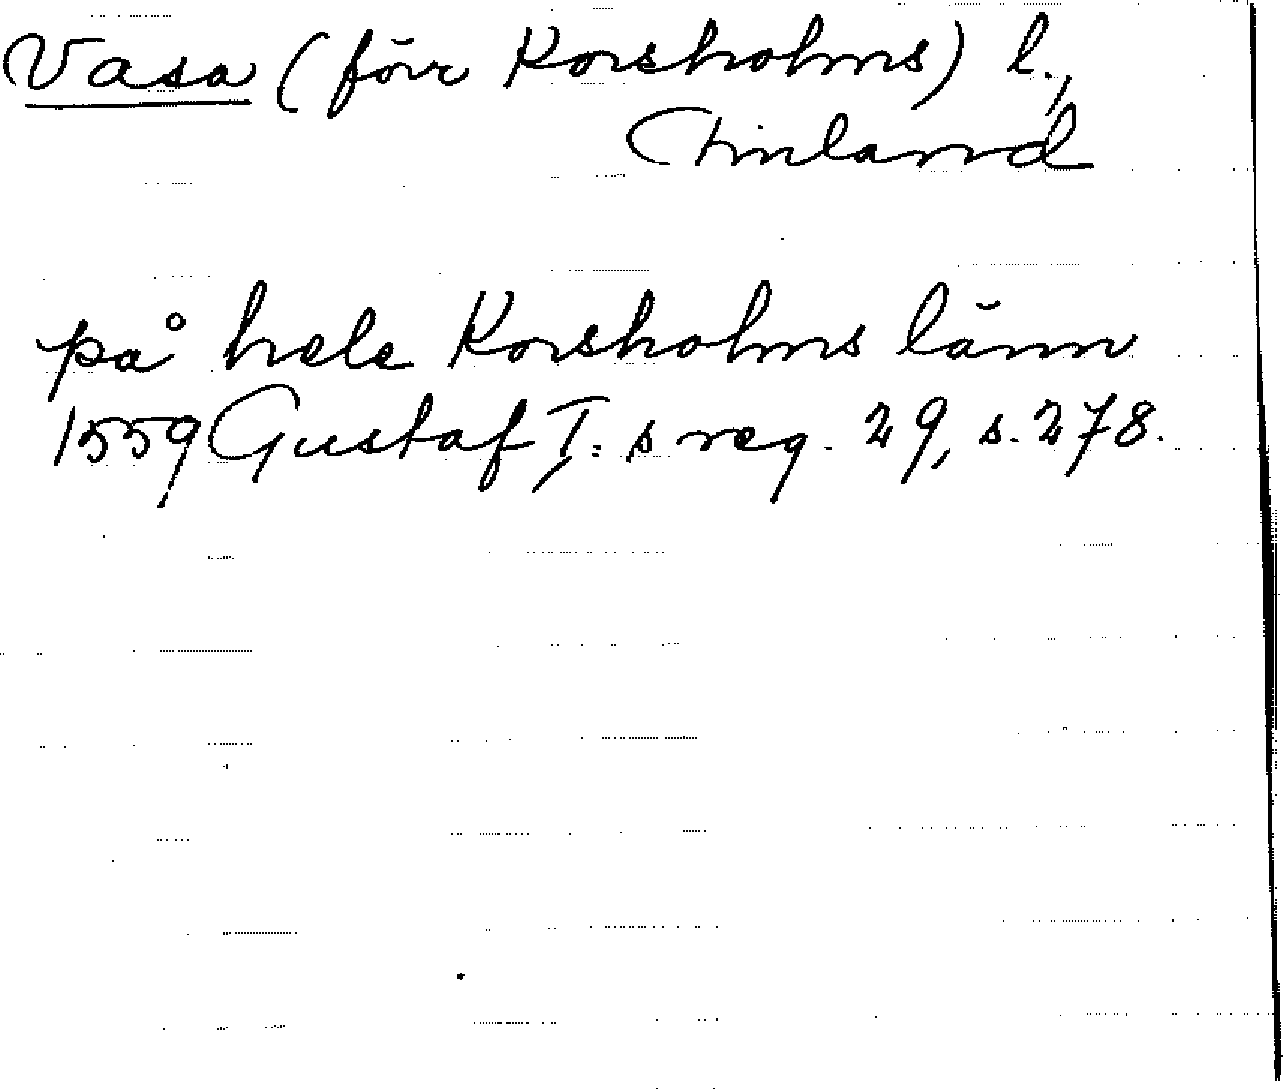 Vasa (förr Korsholms) l.,
Finland
på hele Korsholms länn
1559 Gustaf I:s reg. 29, s. 278.